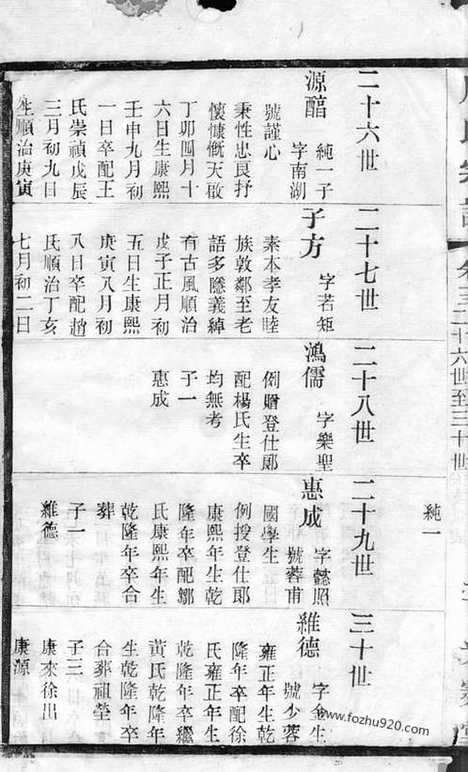 純一
二十六世
源醕 純一子
字南湖
號謹心
秉性忠良抒
懷慷慨天啟
丁卯四月十
六日生康熙
壬申九月初
一日卒配王
氏崇禎戊辰
三月初九日
生順治庚寅
二十七世
子方 字若矩
素本孝友睦
族敦鄰至老
語多隱義綽
有古風順治
戊子正月初
五日生康熙
庚寅八月初
八日卒配趙
氏順治丁亥
七月初二日
二十八世
鴻儒 字樂聖
例贈登仕郎
配楊氏生卒
均無考
子一
惠成
二十九世
惠成 字懿照
號蓉甫
國學生
例授登仕郎
康熙年生乾
隆年卒配鄒
氏康熙年生
乾隆年卒合
葬
子一
維德
三十世
維德 字金生
號少蓉
雍正年生乾
隆年卒配徐
氏雍正年生
乾隆年卒繼
黃氏乾隆年
生乾隆年卒
合葬祖塋
子三
康來徐出
康源
卷三二十六世至三十世
www.fozhu920.com